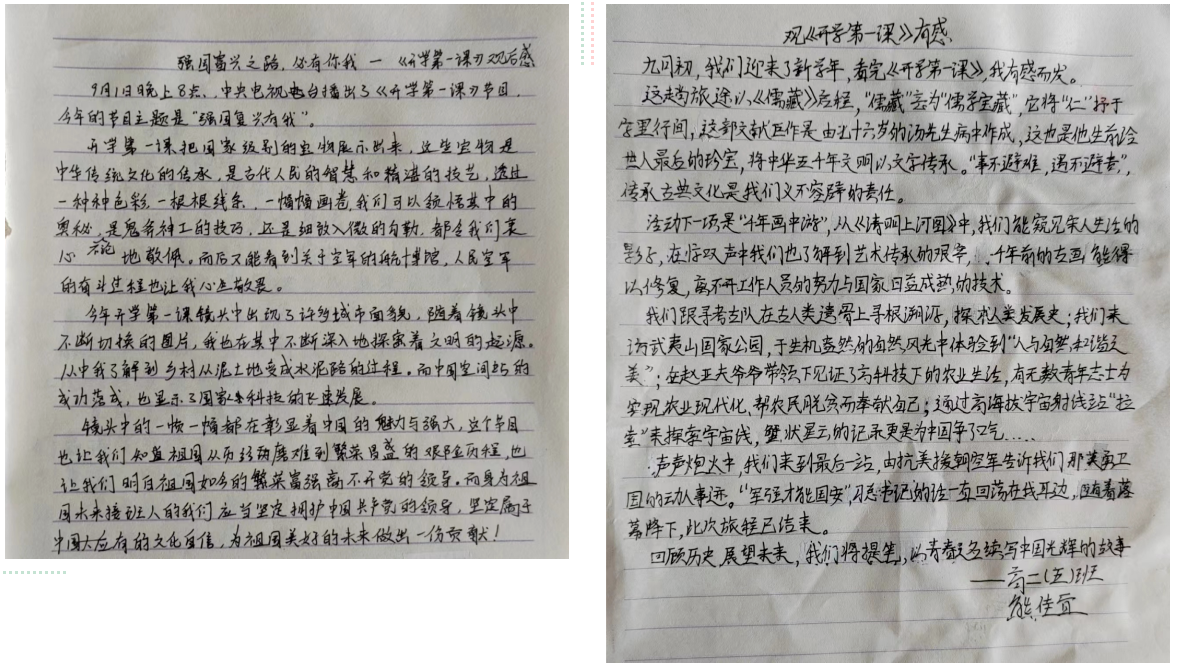 强国富兴之路，必有你我 — 《开学第一课》观后感
9月1日晚上8点，中央电视电台播出了《开学第一课》节目，
今年的节目主题是“强国复兴有我”。
开学第一课把国家级别的宝物展示出来，这些宝物是
中华传统文化的传承，是古代人民的智慧和精湛的技艺，透过
一种种色彩，一根根线条，一幅幅画卷，我们可以领悟其中的
奥秘，是鬼斧神工的技巧，还是细致入微的勾勒，都令我们衷
心 地敬佩。而后又能看到关于空军的航博馆，人民空军
的奋斗过程也让我心生敬畏。
今年开学第一课镜头中出现了许多城市面貌，随着镜头中
不断切换的图片，我也在其中不断深入地探索着文明的起源。
从中我了解到乡村从泥土地变成水泥路的过程，而中国空间站的
成功落成，也显示了国家科技的飞速发展。
镜头中的一帧一幅都在彰显着中国的魅力与强大，这个节目
也让我们知道祖国从历经磨难到繁荣昌盛的艰险历程，也
让我们明白祖国如今的繁荣富强离不开党的领导。而身为祖
国未来接班人的我们应当坚定拥护中国共产党的领导，坚定属于
中国人应有的文化自信，为祖国美好的未来做出一份贡献！
观《开学第一课》有感
九月初，我们迎来了新学年，看完《开学第一课》，我有感而发。
这趟旅途以《儒藏》启程，“儒藏”意为“儒学宝藏”，它将“仁”抒于
字里行间，这部文献巨作是由九十六岁的汤先生病中作成，这也是他生前给
世人最后的珍宝，将中华五千年文明以文字传承。“事不避难，遇不避责”，
传承古典文化是我们义不容辞的责任。
活动下一项是“千年画中游”，从《清明上河图》中，我们能窥见宋人生活的
影子，在惊叹声中我们也了解到艺术传承的艰辛，千年前的古画能得
以修复，离不开工作人员的努力与国家日益成熟的技术。
我们跟寻考古队在古人类遗骨上寻根溯源，探求人类发展史；我们来
访武夷山国家公园，于生机盎然的自然风光中体验到“人与自然和谐之
美”；在赵亚夫爷爷带领下见证了高科技下的农业生活，有无数青年志士为
实现农业现代化，帮农民脱贫而奉献自己；通过高海拔宇宙射线站“拉
索”来探索宇宙线，蟹状星云的记录更是为中国争了口气……
声声炮火中，我们来到最后一站，由抗美援朝空军告诉我们那英勇卫
国的动人事迹。“军强才能国安”习总书记的话一直回荡在我耳边，随着落
幕降下，此次旅程已结束。
回顾历史，展望未来，我们将提笔，以青春之名续写中国光辉的故事
——高二（五）班
熊佳宜